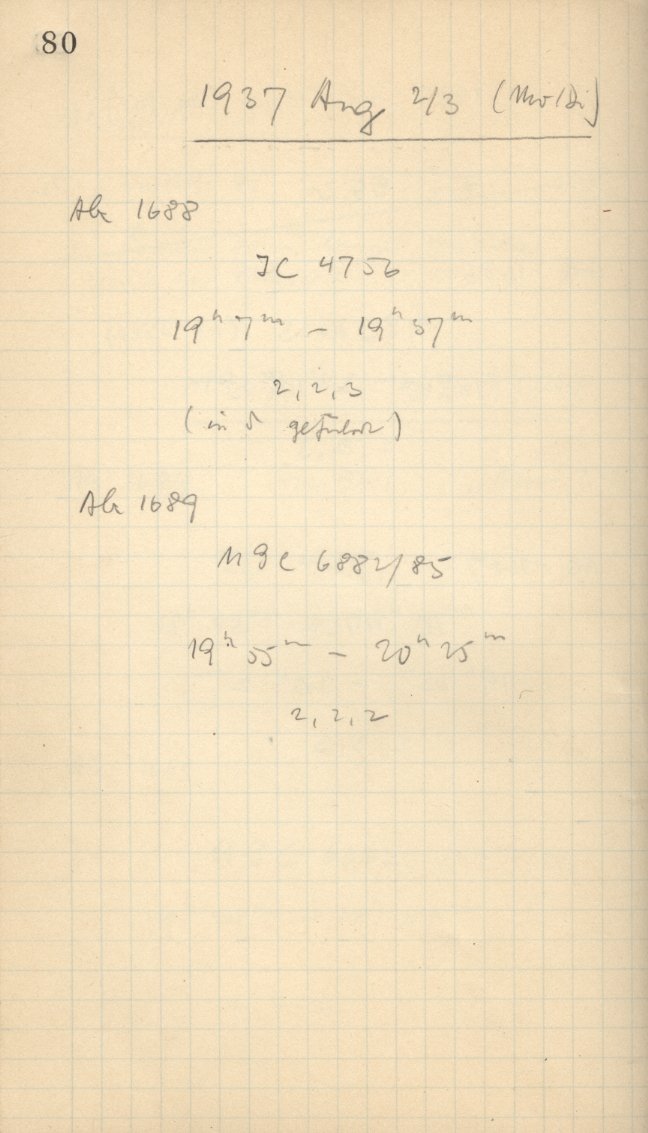 80
1937 Aug 2/3 (Mo/Di)
1688
IC 4756
19ʰ 7ᵐ – 19ʰ 57ᵐ
2, 2, 3
(in δ geführt)
1689
NGC 6882/85
19ʰ 55ᵐ – 20ʰ 25ᵐ
2, 2, 2